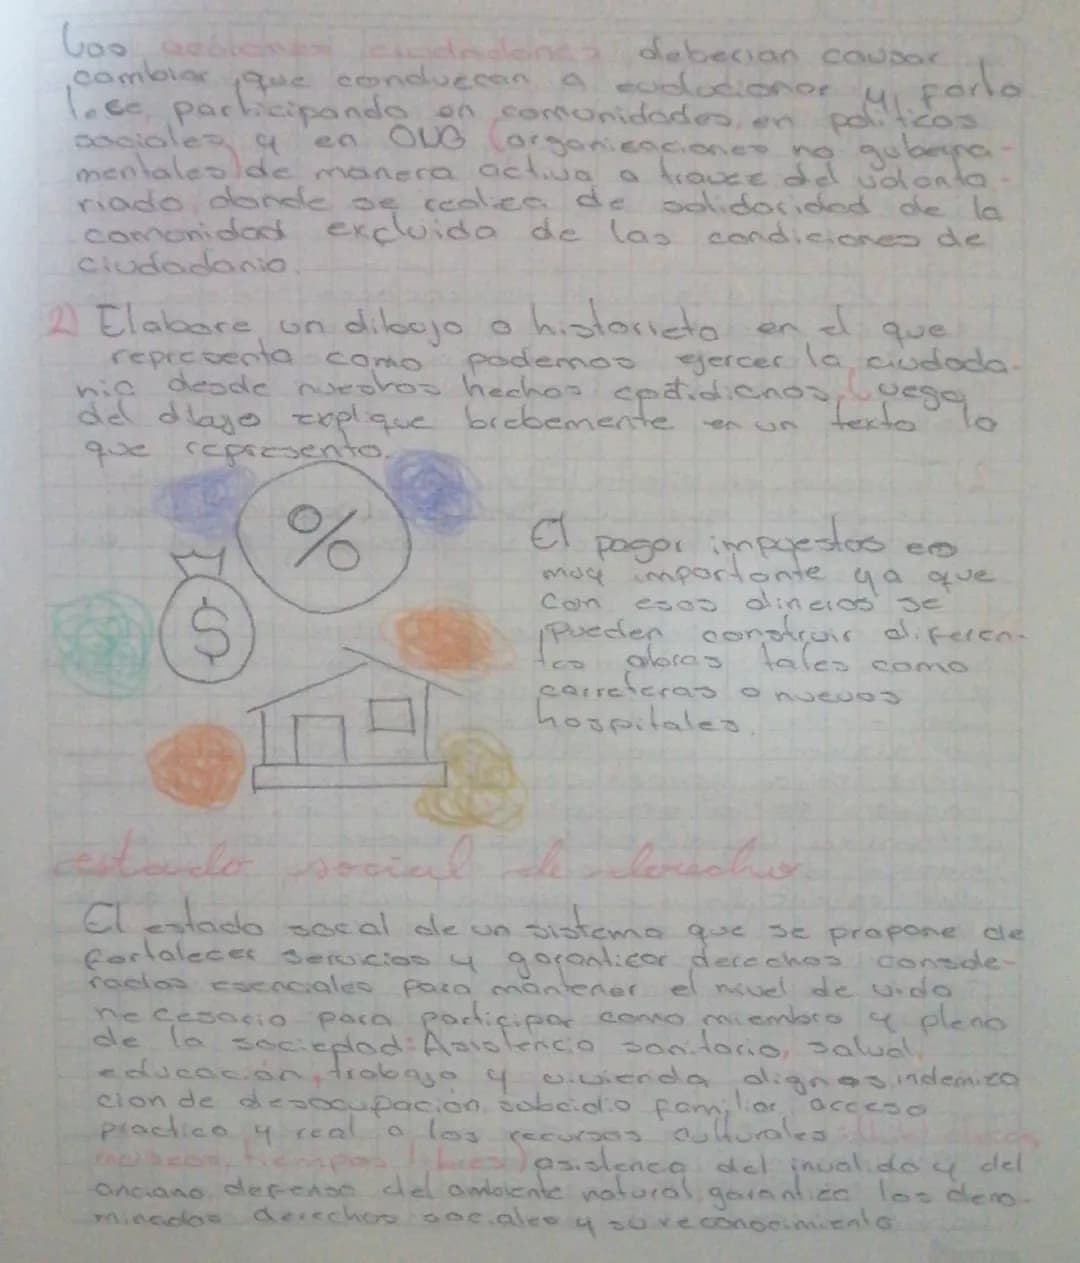 Las acciones ciudadanas deberian causar
cambiar, que conduzcan a evolucionar y, forta
lece, participando en comunidades, en politicas
sociales, y en ONG (organizaciones no guberna-
mentales) de manera activa a travez del volonta-
riado, donde se realiza de solidaridad de la
comunidad excluida de las condiciones de
ciudadania.
2) Elabore un dibujo o historieta en el que
representa como podemos ejercer la ciudada-
nia desde nuestros hechos cotidianos, Luego
del dibujo explique brebemente en un texto lo
que represento.
%
$
El pagar impuestos es
muy importante ya que
con esos dineros se
pueden construir diferen-
tes obras tales como
carreteras o nuevos
hospitales.
estado social de derecho.
El estado social de un sistema que se propone de
fortalecer servicios y garanticar derechos conside-
rados esenciales para mantener el nivel de vida
necesario para participar como miembro y pleno
de la sociedad: Asistencia sanitaria, salud,
educacion, trabajo y vivienda dignas, indemiza
cion de desocupación, subcidio familiar, acceso
practico y real a los recursos culturales
museos, tiempos libres) asistenca del invalido y del
anciano, defensa del ambiente natural, garantiza los deno-
minados derechos sociales y su reconocimiento